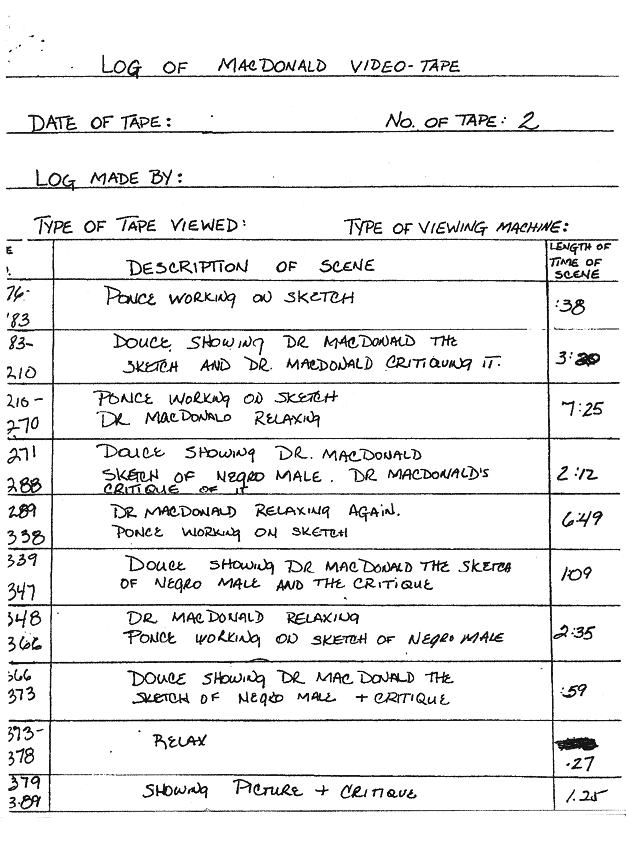 LOG OF MACDONALD VIDEO-TAPE
DATE OF TAPE: NO. OF TAPE: 2
LOG MADE BY:
TYPE OF TAPE VIEWED: TYPE OF VIEWING MACHINE:
E DESCRIPTION OF SCENE LENGTH OF
TIME OF
SCENE
76- PONCE WORKING ON SKETCH :38
'83
83- DOUCE SHOWING DR MACDONALD THE
210 SKETCH AND DR. MACDONALD CRITIQUING IT. 3:
210- PONCE WORKING ON SKETCH
270 DR MACDONALD RELAXING 7:25
271 DOUCE SHOWING DR. MACDONALD
SKETCH OF NEGRO MALE. DR MACDONALD'S 2:12
288 CRITIQUE OF IT
289 DR MACDONALD RELAXING AGAIN. 6:49
338 PONCE WORKING ON SKETCH
339 DOUCE SHOWING DR MACDONALD THE SKETCH
347 OF NEGRO MALE AND THE CRITIQUE 1:09
348 DR MACDONALD RELAXING
366 PONCE WORKING ON SKETCH OF NEGRO MALE 2:35
366 DOUCE SHOWING DR MACDONALD THE
373 SKETCH OF NEGRO MALE + CRITIQUE :59
373- RELAX
378 .27
379 SHOWING PICTURE + CRITIQUE 1.25
389